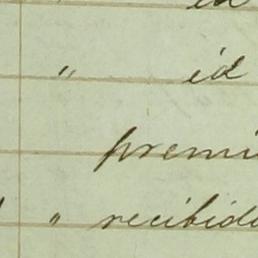 id
" id
premi
" recibid